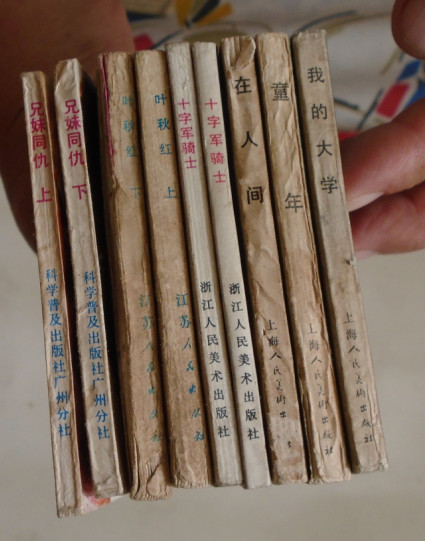 兄妹同仇 上
科学普及出版社广州分社
兄妹同仇 下
科学普及出版社广州分社
叶秋红 下
江苏人民出版社
叶秋红 上
江苏人民出版社
十字军骑士
浙江人民美术出版社
十字军骑士
浙江人民美术出版社
在人间
上海人民美术出
童年
上海人民美术出版社
我的大学
上海人民美术出版社